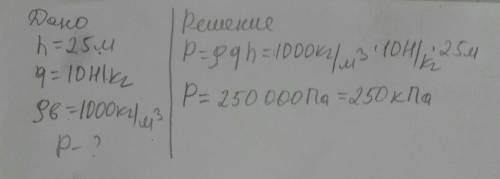 Дано
h=25м
g=10Н/кг
ρв=1000кг/м³
P-?
Решение
P=ρgh=1000кг/м³·10Н/кг·25м
P=250 000Па=250кПа